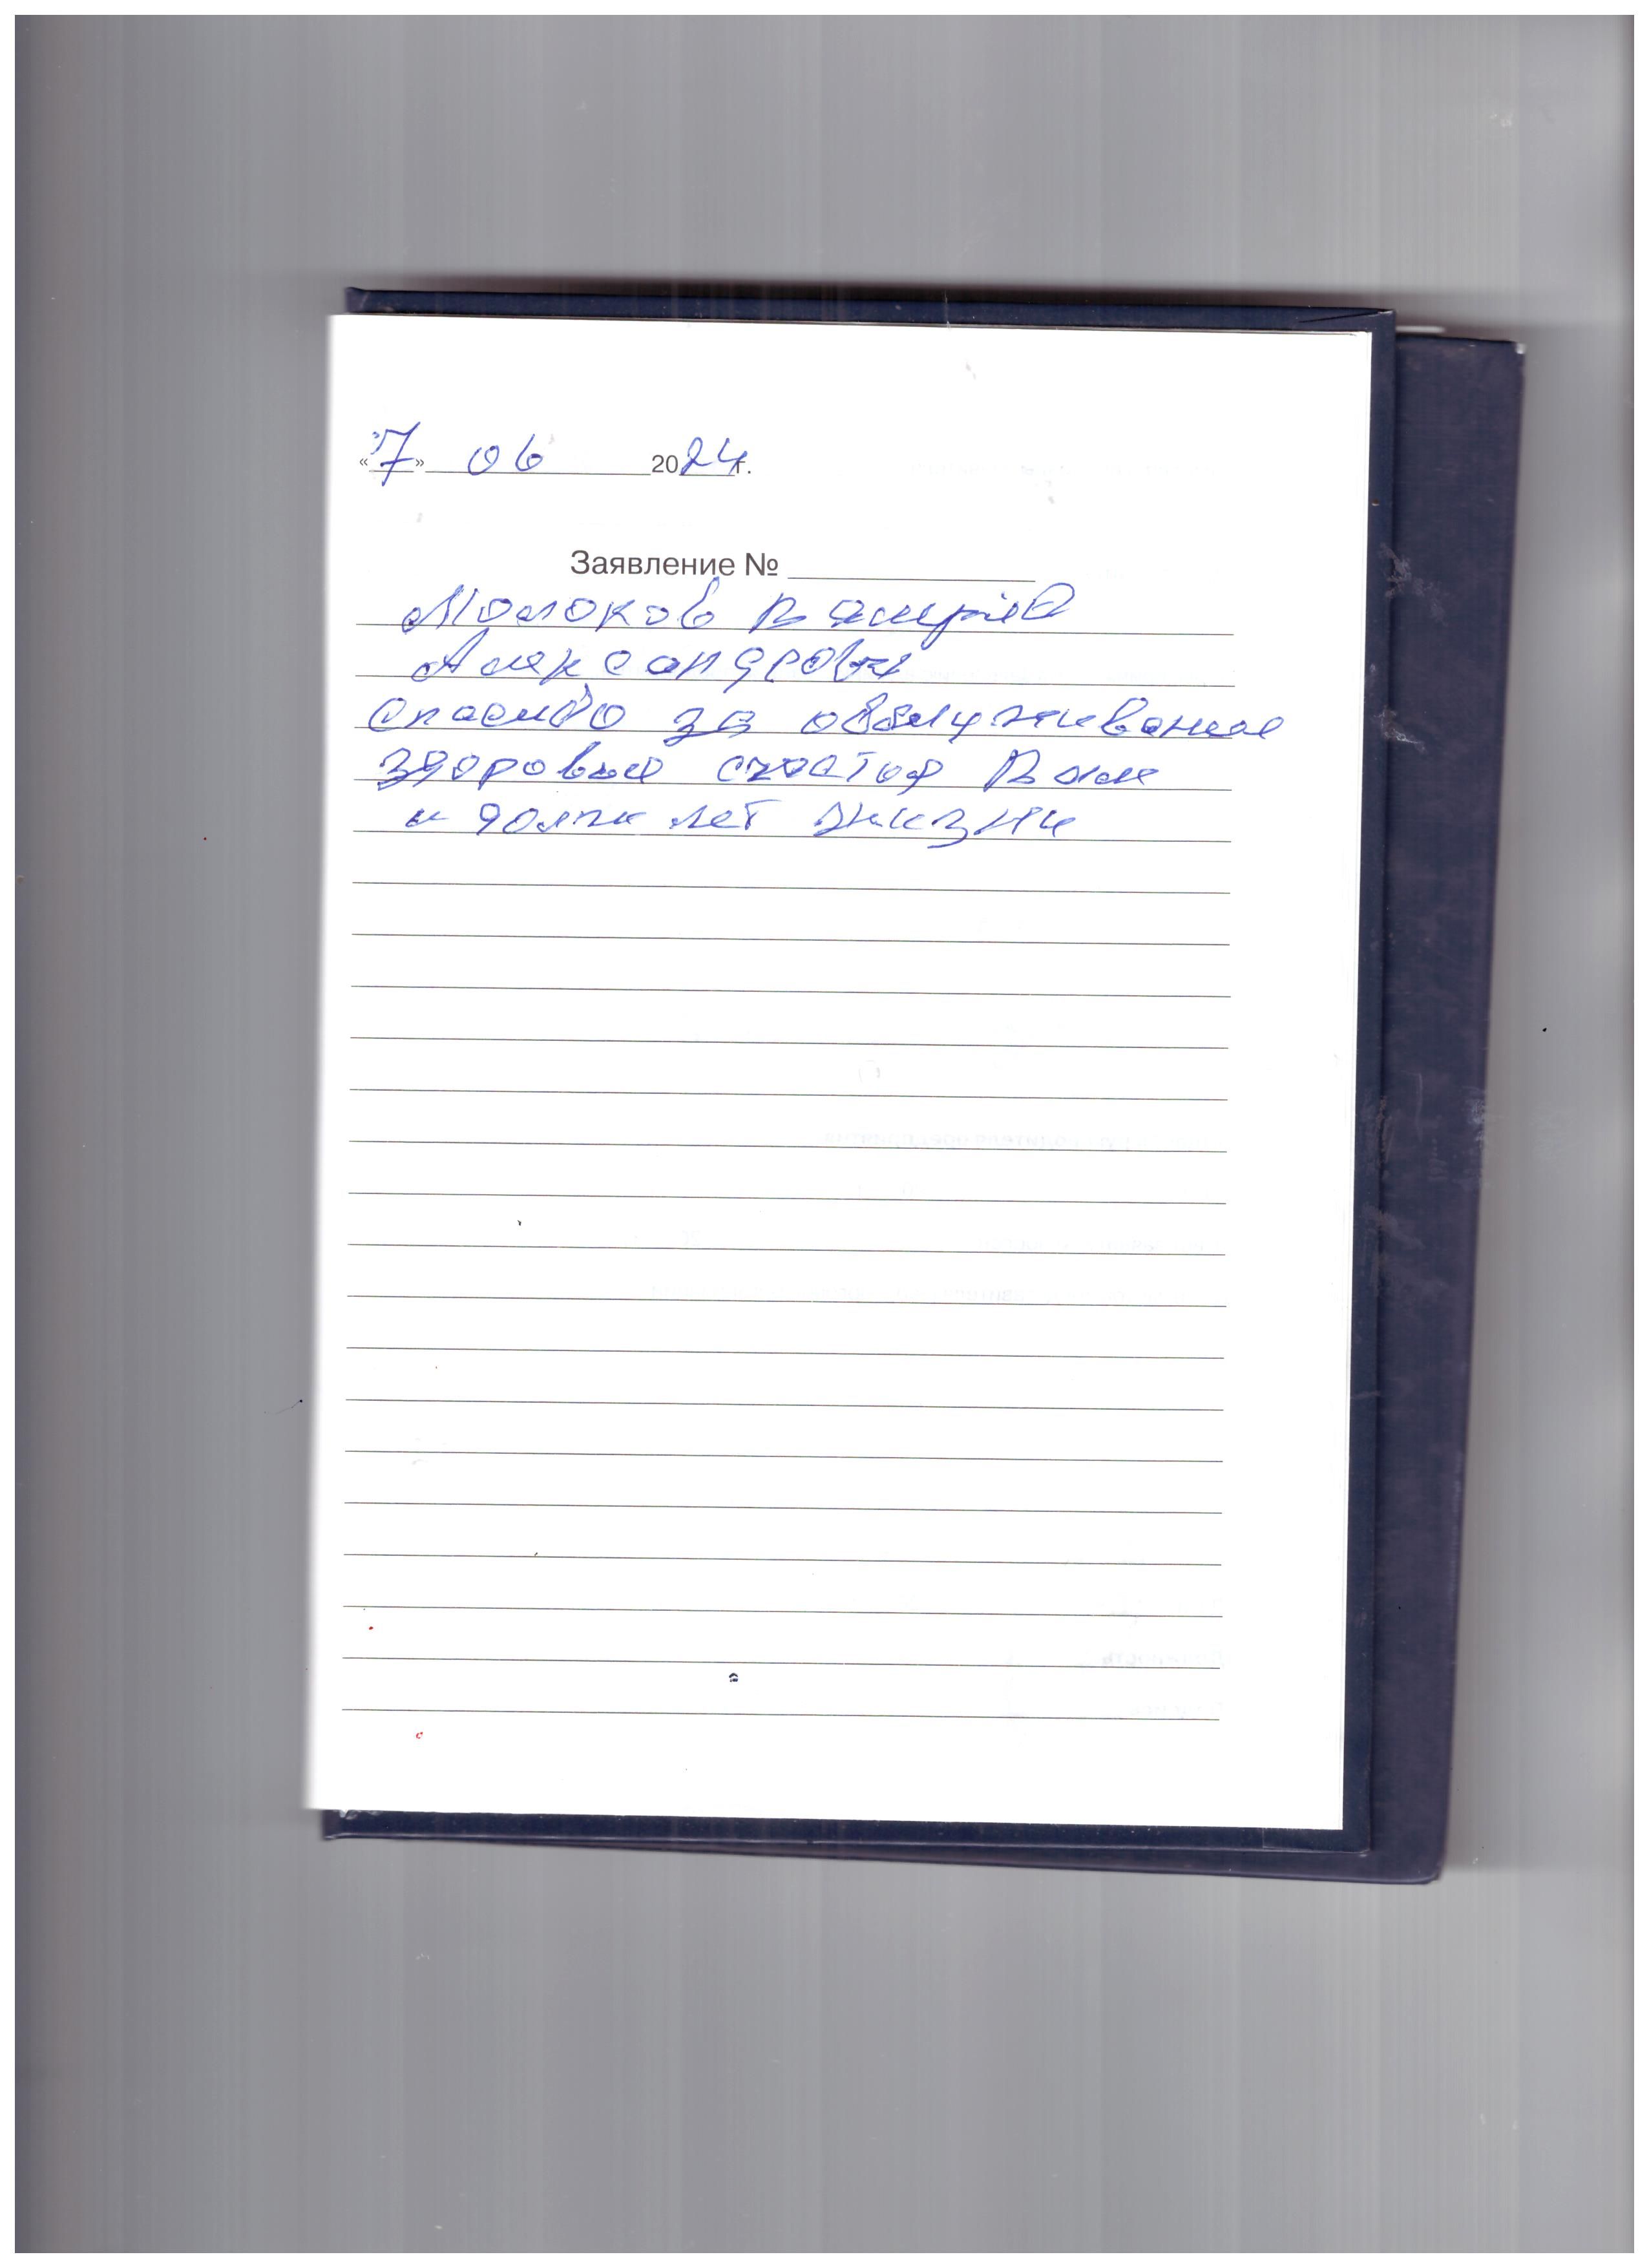 «7» 06 2024г.
Заявление №
Молоков Валерий
Александрович
Спасибо за обслуживание
здоровье счастья Вам
и долги лет жизни